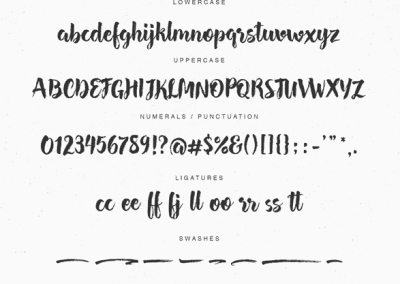 LOWERCASE
abcdefghijklmnopqrstuvwxyz
UPPERCASE
ABCDEFGHIJKLMNOPQRSTUVWXYZ
NUMERALS / PUNCTUATION
0123456789!?@#$%&()[]{};:-'"*,.
LIGATURES
cc ee ff fj ll oo rr ss tt
SWASHES